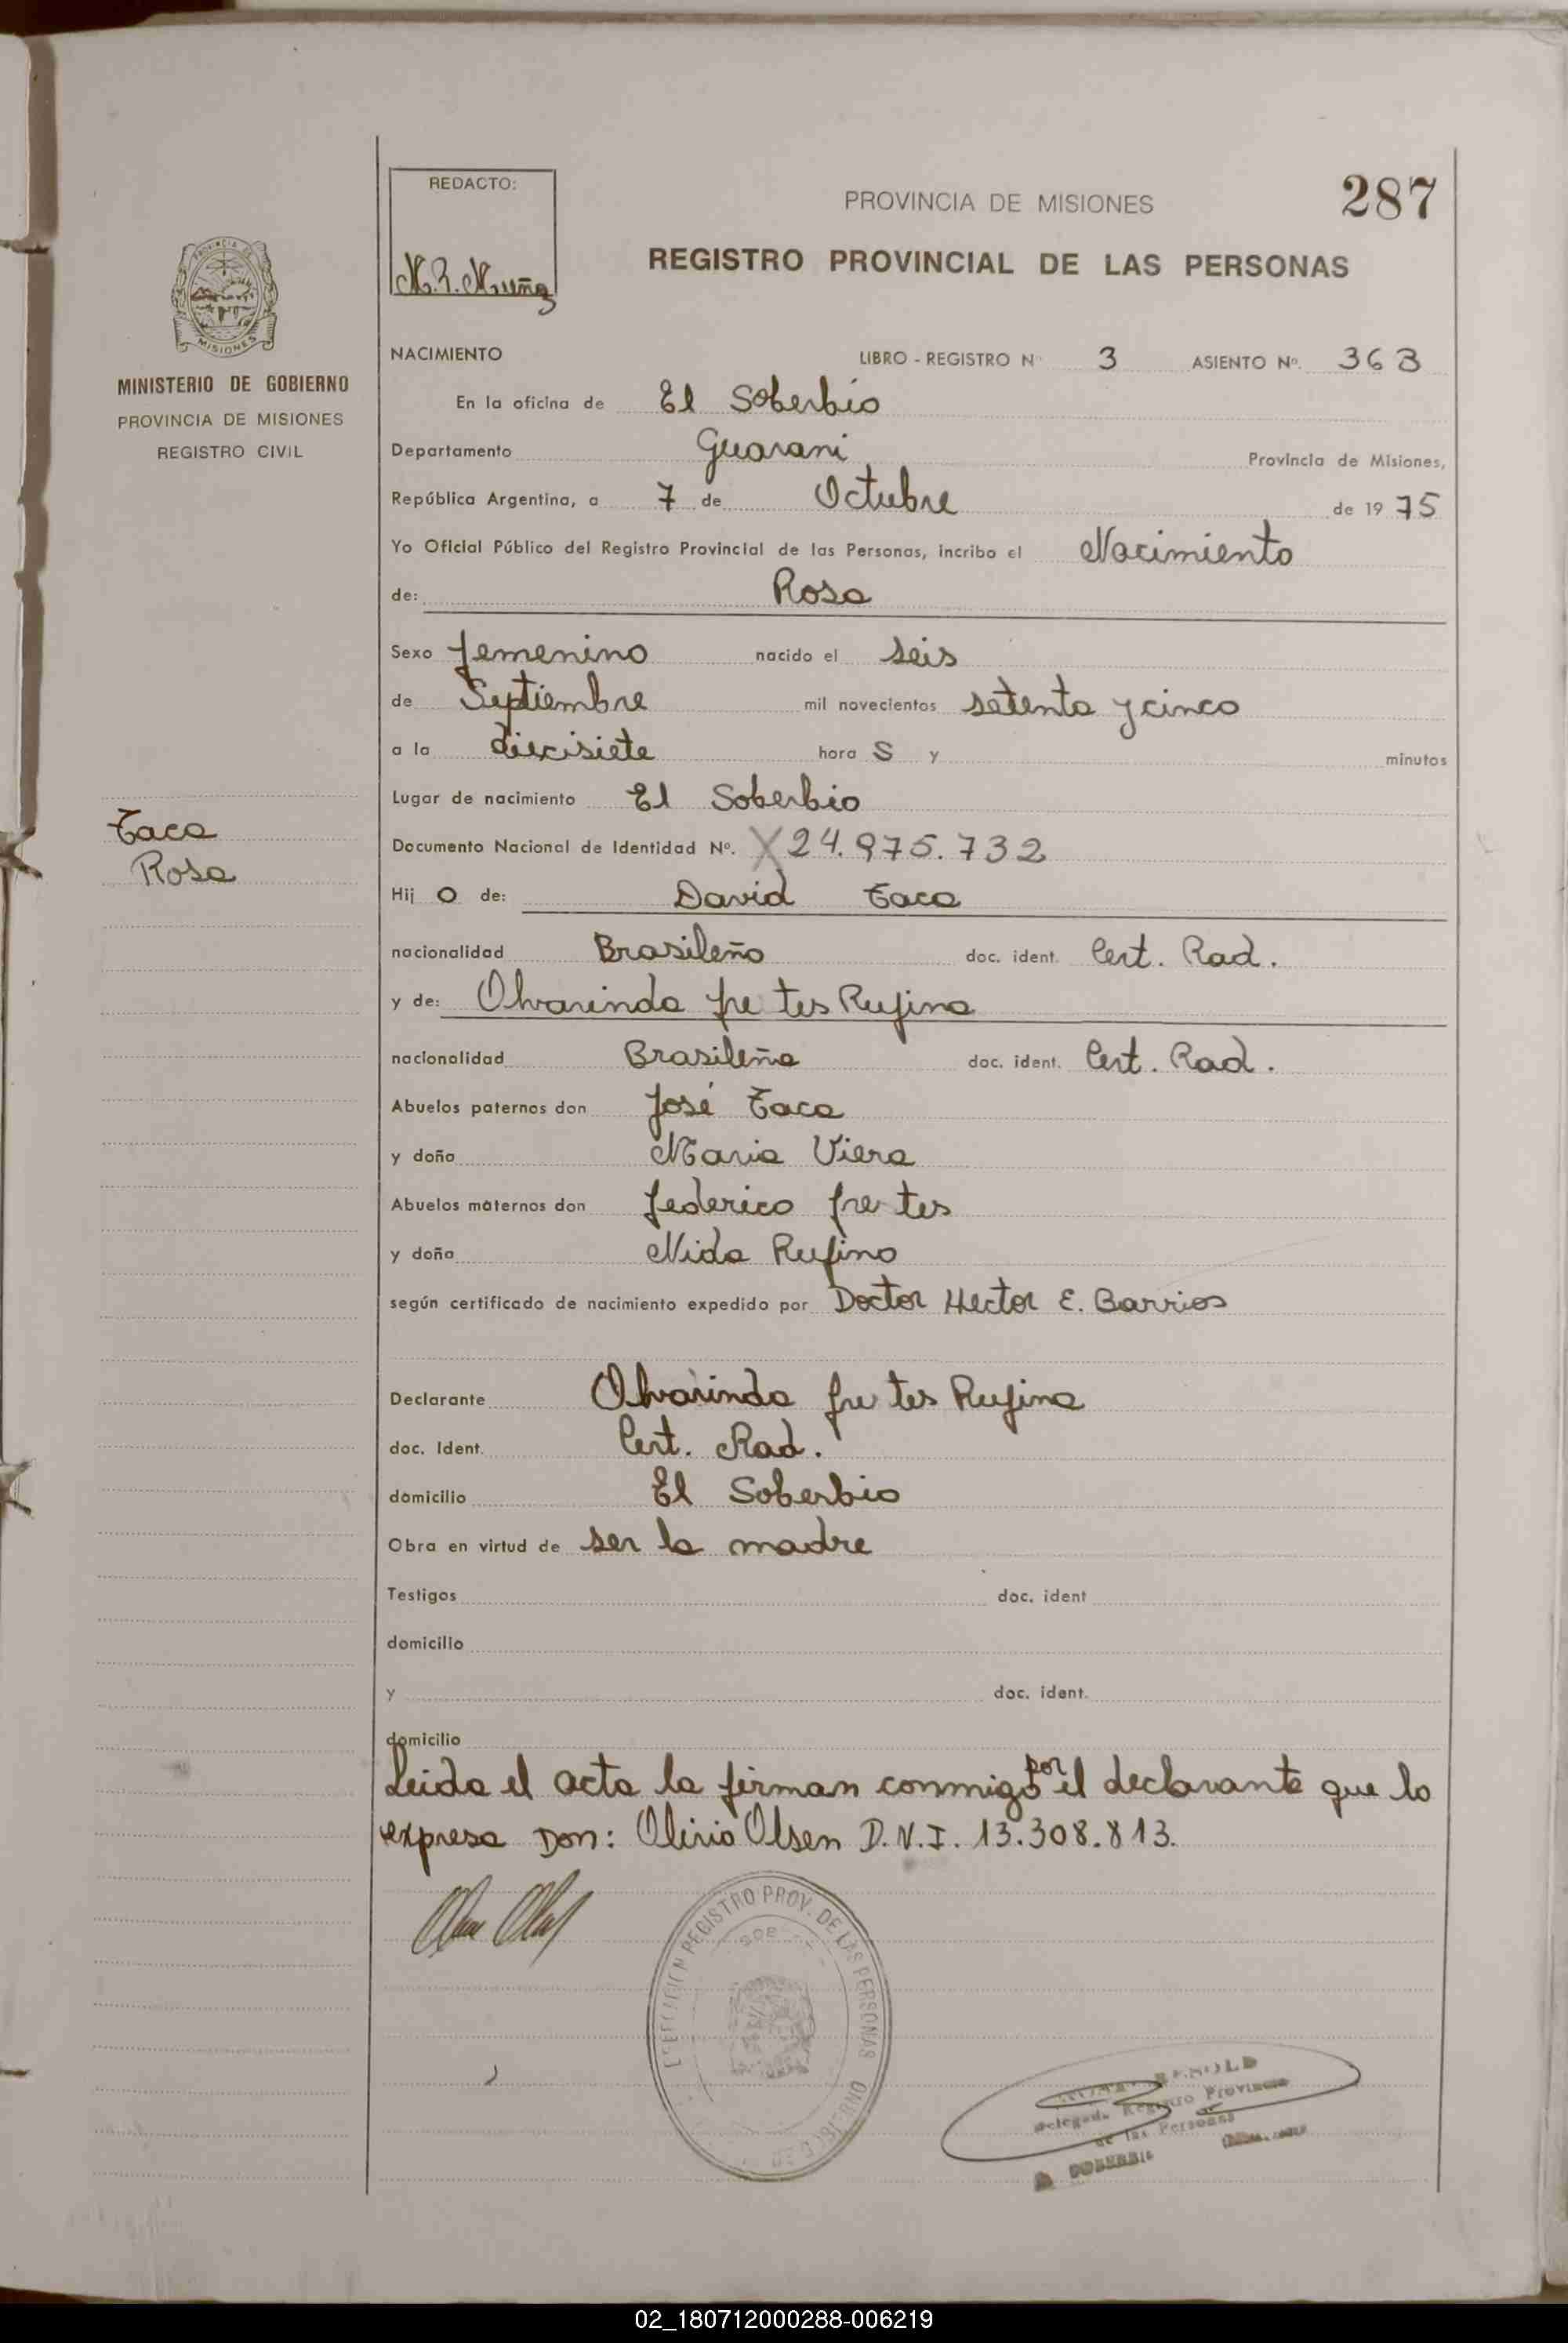 REDACTO:
M.R. Muñoz
PROVINCIA DE MISIONES
287
REGISTRO PROVINCIAL DE LAS PERSONAS
MISIONES
MINISTERIO DE GOBIERNO
PROVINCIA DE MISIONES
REGISTRO CIVIL
NACIMIENTO LIBRO - REGISTRO Nº 3 ASIENTO Nº. 363
En la oficina de El Soberbio
Departamento Guarani Provincia de Misiones,
República Argentina, a 7 de Octubre de 1975
Yo Oficial Público del Registro Provincial de las Personas, incribo el Nacimiento
de: Rosa
Sexo femenino nacido el seis
de Septiembre mil novecientos setenta y cinco
a la diecisiete hora S y minutos
Lugar de nacimiento El Soberbio
Taca
Rosa
Documento Nacional de Identidad Nº. X 24.975.732
Hij a de: David Taca
nacionalidad Brasileño doc. ident. Cert. Rad.
y de: Olvarinda fretes Rufina
nacionalidad Brasileña doc. ident. Cert. Rad.
Abuelos paternos don José Taca
y doña Maria Viera
Abuelos maternos don federico fretes
y doña Nida Rufino
según certificado de nacimiento expedido por Doctor Hector E. Barrios
Declarante Olvarinda fretes Rufina
doc. Ident. Cert. Rad.
domicilio El Soberbio
Obra en virtud de ser la madre
Testigos doc. ident
domicilio
y doc. ident.
domicilio
Leida el acta la firman conmigo por el declarante que lo
expresa Don: Olirio Olsen D.N.I. 13.308.813.
REGISTRO PROV. DE LAS PERSONAS
Registro Provincia
de las Personas
02_180712000288-006219